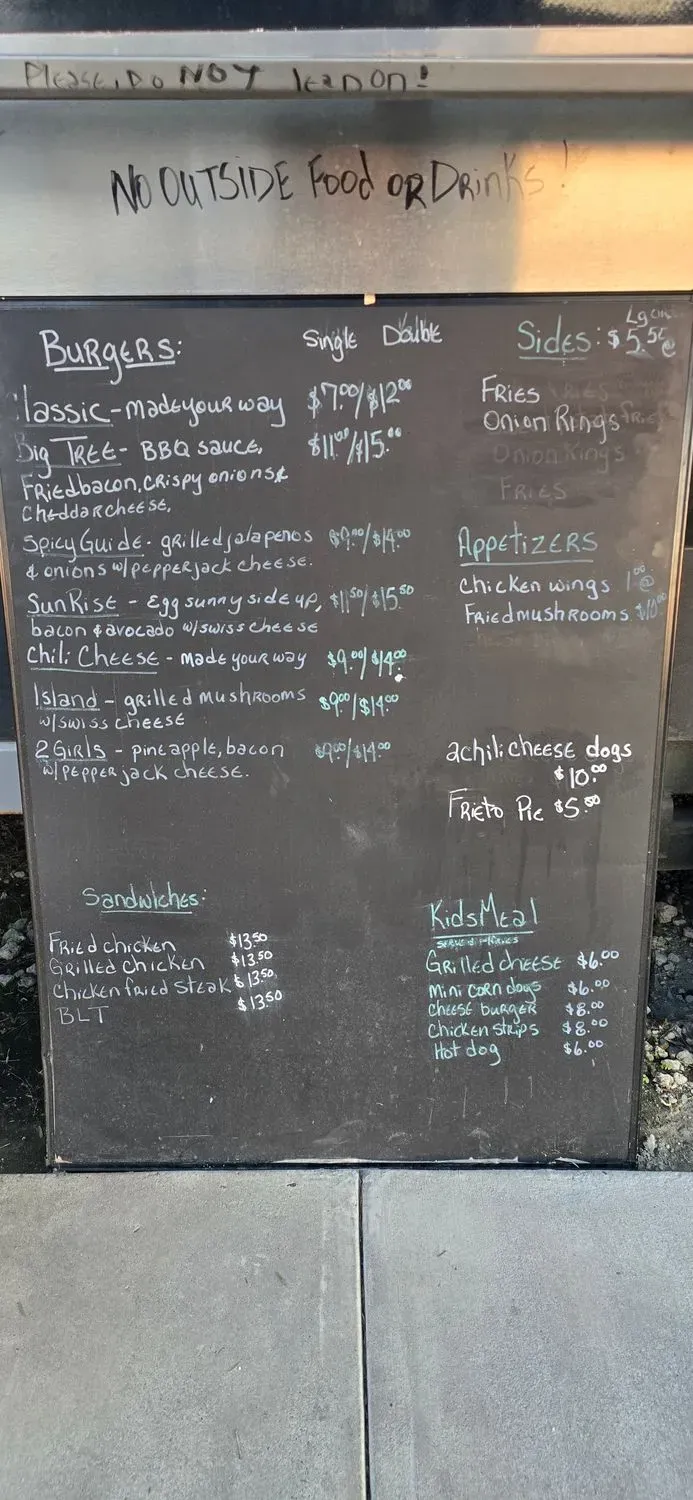 Please, Do NOT lean on!
NO OUTSIDE Food OR Drinks!
BURGERS: Single Double
lassic - made your way $7.00/$12.00
Big TREE - BBQ sauce, $11.00/$15.00
Fried bacon, crispy onions &
cheddar cheese,
Spicy Guide - grilled jalapenos $9.00/$14.00
& onions w/pepper jack cheese.
SunRise - Egg sunny side up, $11.50/$15.50
bacon & avocado w/swiss cheese
Chili Cheese - made your way $9.00/$14.00
Island - grilled mushrooms $9.00/$14.00
w/swiss cheese
2 Girls - pineapple, bacon $9.00/$14.00
w/pepper jack cheese.
Sandwiches:
Fried chicken $13.50
Grilled chicken $13.50
Chicken fried steak $13.50
BLT $13.50
Lg
Sides: $5.50
FRIES
Onion Rings
Onion Rings
FRIES
Appetizers
Chicken wings 1.00 @
Fried mushrooms $10.00
2 chili cheese dogs
$10.00
Frieto Pie $5.50
Kids Meal
Grilled cheese $6.00
mini corn dogs $6.00
cheese burger $8.00
chicken strips $8.00
Hot dog $6.00